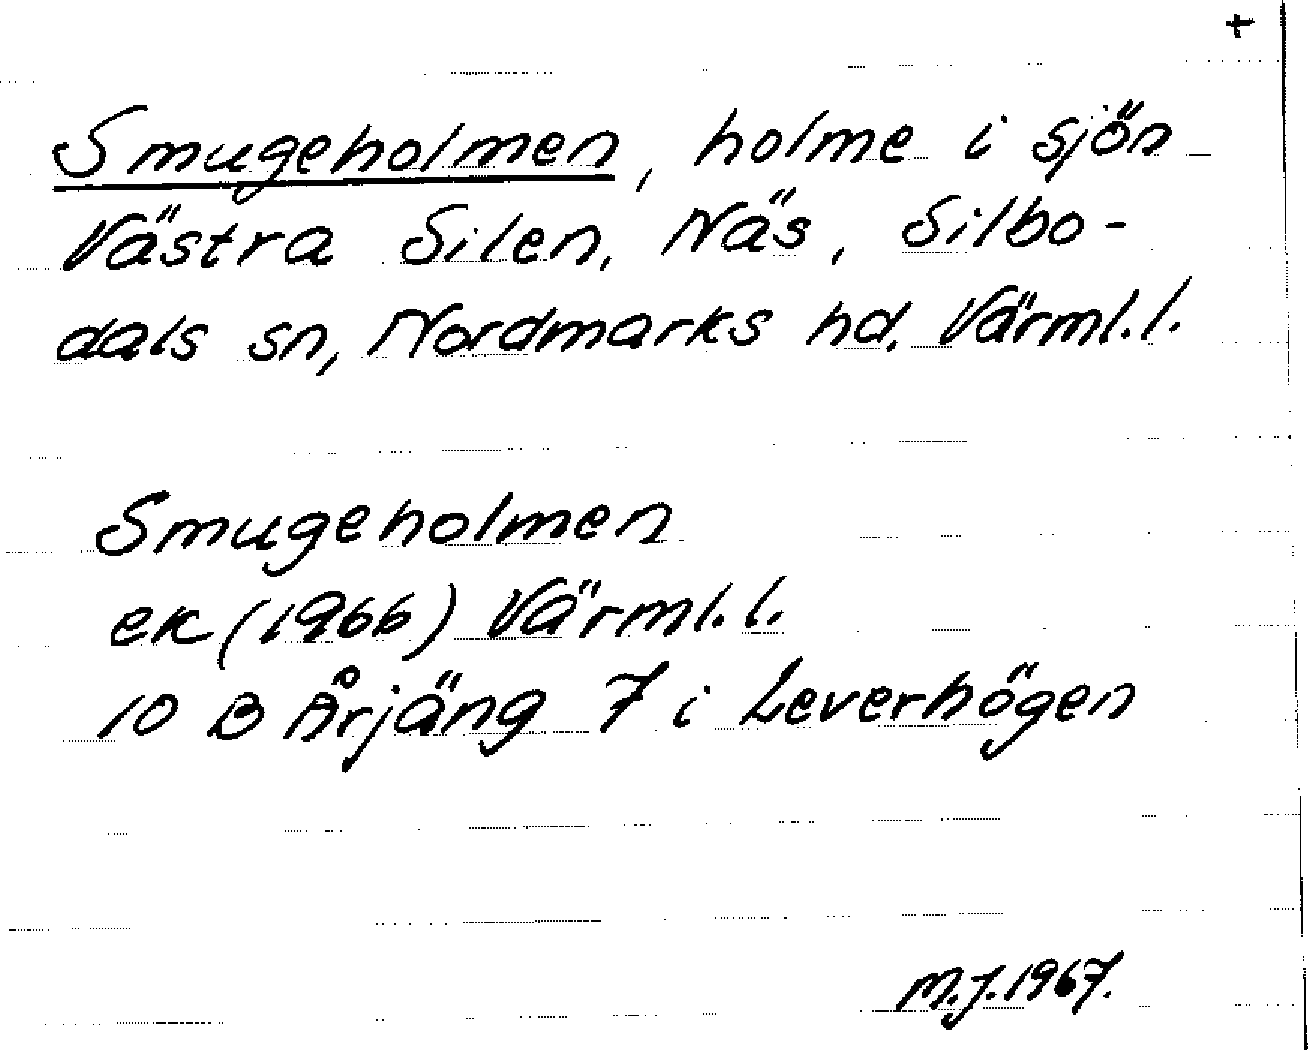 +
Smugeholmen, holme i sjön
Västra Silen, Näs, Silbo-
dals sn, Nordmarks hd. Värml.l.
Smugeholmen
ek (1966) Värml.l.
10 B Årjäng 7 i Leverhögen
M.J.1967.